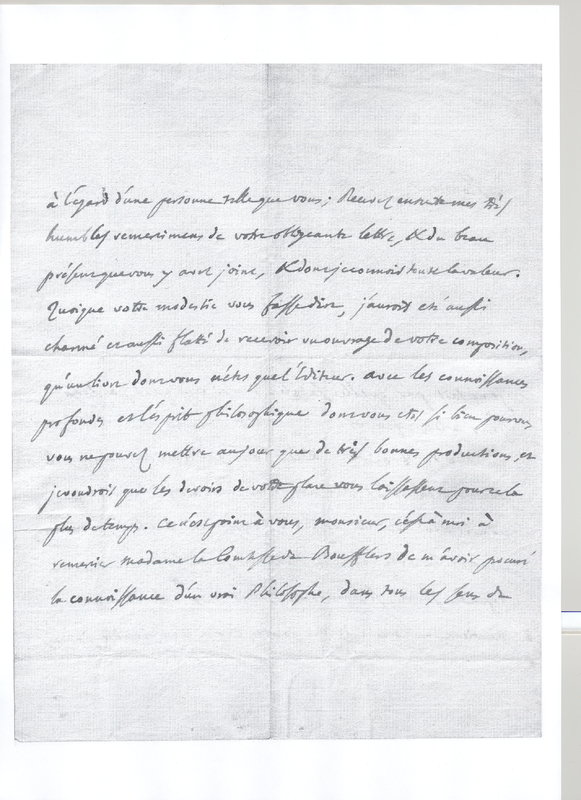 à l'égard d'une personne telle que vous; Recevez ensuite mes très
humbles remercimens de votre obligeante lettre, & du beau
présent que vous y avez joint, & dont je connois toute la valeur.
Quoique votre modestie vous fasse dire, j'aurois été aussi
charmé et aussi flatté de recevoir un ouvrage de votre composition,
qu'un livre dont vous n'êtes que l'Editeur. avec les connoissances
profondes et l'esprit philosophique dont vous etes si bien pourvu
vous ne pouvez mettre au jour que de très bonnes productions, et
je voudrois que les devoirs de votre place vous laissassent pour cela
plus de tems. Ce n'est point à vous, monsieur, c'est à moi à
remercier madame la Comtesse de Boufflers de m'avoir procuré
la connoissance d'un vrai Philosophe, dans tous les sens du